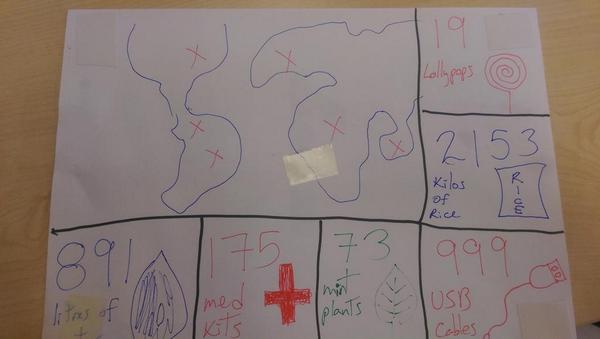 19
Lollypops
2153
Kilos
of
Rice
RICE
891
litres of
175
med
kits
73
mint
plants
999
USB
Cables